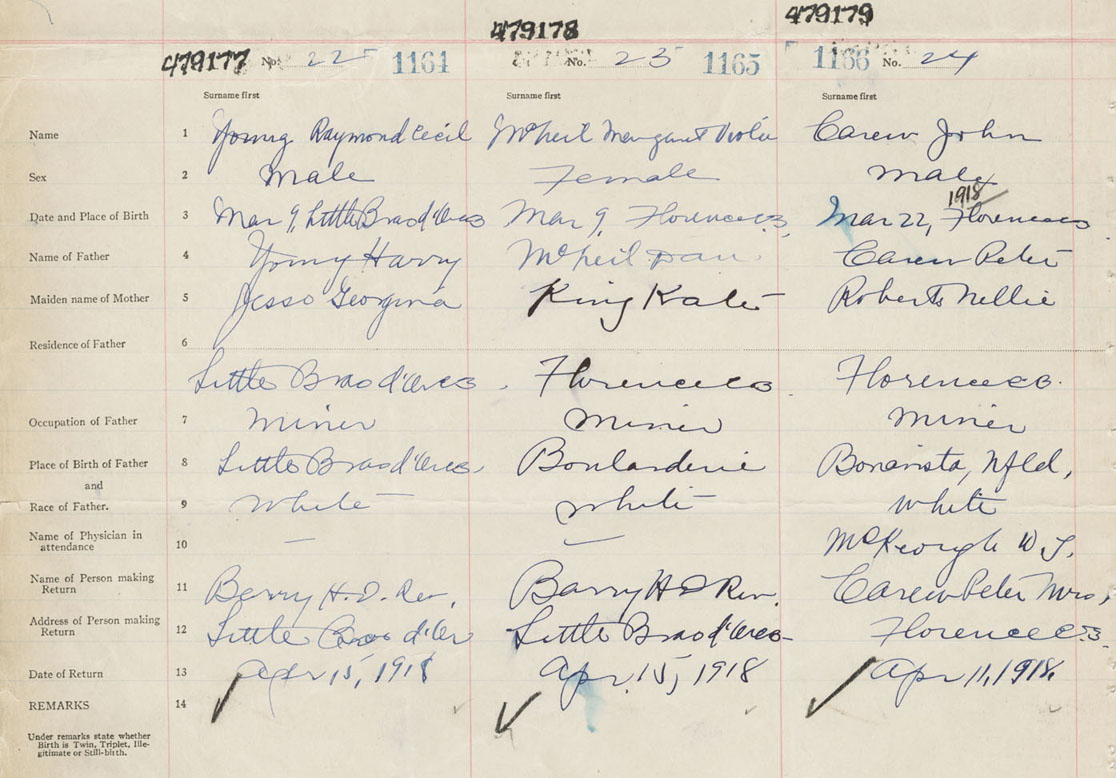 479177 479178 479179
No. 22 1164 No. 23 1165 1166 No. 24
Surname first Surname first Surname first
Name 1 Young Raymond Cecil McNeil Margaret Viola Carew John
Sex 2 Male Female Male
1918
Date and Place of Birth 3 Mar 9, Little Bras d'Or CB Mar 9, Florence CB, Mar 22, Florence CB
Name of Father 4 Young Harry McNeil Dan Carew Peter
Maiden name of Mother 5 Jesso Georgina King Kate Roberts Nellie
Residence of Father 6
Little Bras d'Or CB Florence CB Florence CB.
Occupation of Father 7 Miner Miner Miner
Place of Birth of Father 8 Little Bras d'Or CB, Boularderie Bonavista, Nfld,
and
Race of Father. 9 White White White
Name of Physician in
attendance 10 — — McKeough W. J.
Name of Person making
Return 11 Barry H. D. Rev. Barry H D Rev. Carew Peter Mrs,
Address of Person making
Return 12 Little Bras d'Or Little Bras d'Or CB Florence C.B.
Date of Return 13 Apr 15, 1918 Apr. 15, 1918 Apr 11, 1918.
REMARKS 14
Under remarks state whether
Birth is Twin, Triplet, Ille-
gitimate or Still-birth.